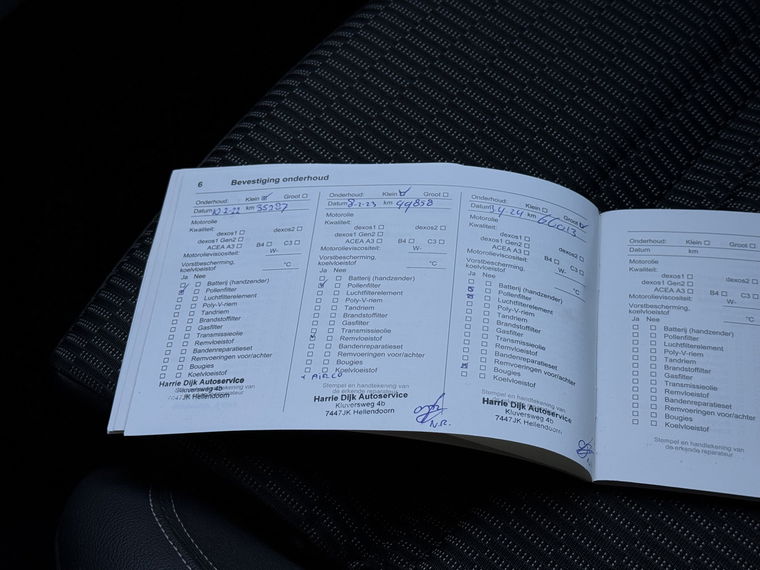 6 Bevestiging onderhoud
Onderhoud: Klein Groot
Datum 10-2-22 km 35287
Motorolie
Kwaliteit:
dexos1 dexos2
dexos1 Gen2
ACEA A3 B4 C3
Motorolieviscositeit: W-
Vorstbescherming,
koelvloeistof °C
Ja Nee
Batterij (handzender)
Pollenfilter
Luchtfilterelement
Poly-V-riem
Tandriem
Brandstoffilter
Gasfilter
Transmissieolie
Remvloeistof
Bandenreparatieset
Remvoeringen voor/achter
Bougies
Koelvloeistof
Harrie Dijk Autoservice
Kluversweg 4b
7447JK Hellendoorn
Onderhoud: Klein Groot
Datum 8-2-23 km 49858
Motorolie
Kwaliteit:
dexos1 dexos2
dexos1 Gen2
ACEA A3 B4 C3
Motorolieviscositeit: W-
Vorstbescherming,
koelvloeistof °C
Ja Nee
Batterij (handzender)
Pollenfilter
Luchtfilterelement
Poly-V-riem
Tandriem
Brandstoffilter
Gasfilter
Transmissieolie
Remvloeistof
Bandenreparatieset
Remvoeringen voor/achter
Bougies
Koelvloeistof
+ AIRCO
Stempel en handtekening van
de erkende reparateur
Harrie Dijk Autoservice
Kluversweg 4b
7447JK Hellendoorn
N.R.
Onderhoud: Klein Groot
Datum 4-24 km
Motorolie
Kwaliteit:
dexos1 dexos2
dexos1 Gen2
ACEA A3 B4 C3
Motorolieviscositeit: W-
Vorstbescherming,
koelvloeistof °C
Ja Nee
Batterij (handzender)
Pollenfilter
Luchtfilterelement
Poly-V-riem
Tandriem
Brandstoffilter
Gasfilter
Transmissieolie
Remvloeistof
Bandenreparatieset
Remvoeringen voor/achter
Bougies
Koelvloeistof
Stempel en handtekening van
de erkende reparateur
Harrie Dijk Autoservice
Kluversweg 4b
7447JK Hellendoorn
Onderhoud: Klein Groot
Datum km
Motorolie
Kwaliteit:
dexos1 dexos2
dexos1 Gen2
ACEA A3 B4 C3
Motorolieviscositeit: W-
Vorstbescherming,
koelvloeistof °C
Ja Nee
Batterij (handzender)
Pollenfilter
Luchtfilterelement
Poly-V-riem
Tandriem
Brandstoffilter
Gasfilter
Transmissieolie
Remvloeistof
Bandenreparatieset
Remvoeringen voor/achter
Bougies
Koelvloeistof
Stempel en handtekening van
de erkende reparateur